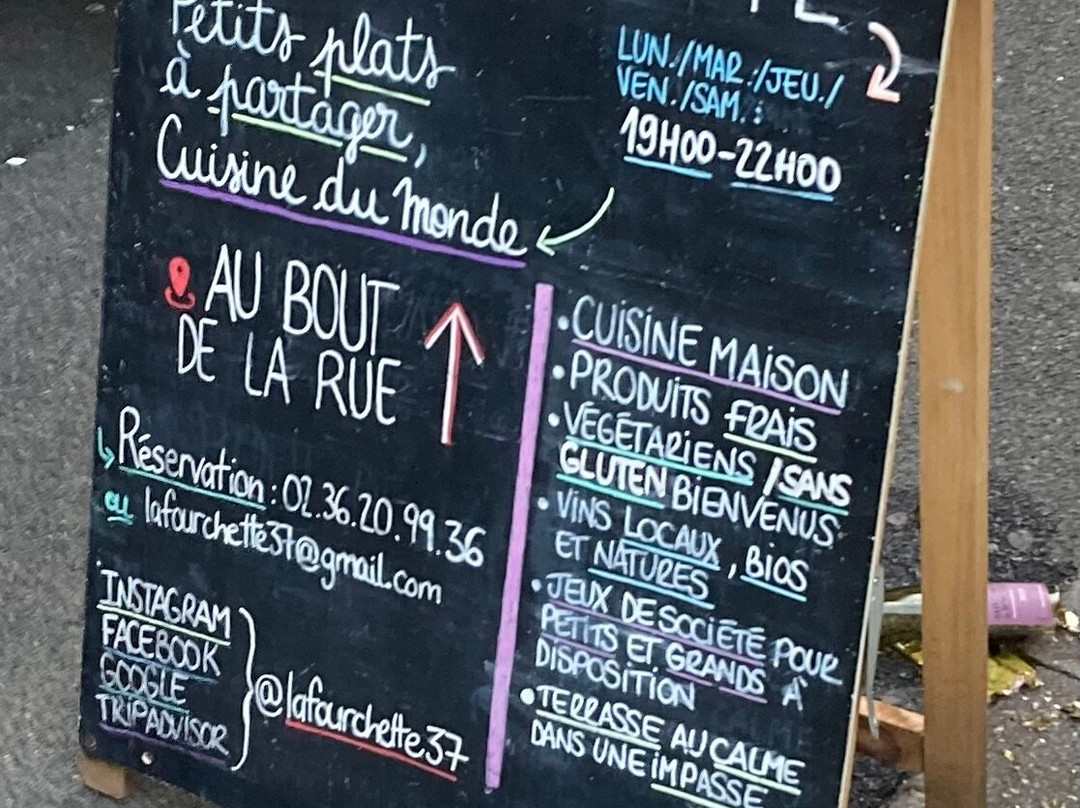 Petits plats
à partager,
Cuisine du monde
LUN./MAR./JEU./
VEN./SAM. :
19H00-22H00
AU BOUT
DE LA RUE
Réservation : 02.36.20.99.36
ou lafourchette37@gmail.com
INSTAGRAM
FACEBOOK
GOOGLE
TRIPADVISOR
@lafourchette37
• CUISINE MAISON
• PRODUITS FRAIS
• VÉGÉTARIENS / SANS
GLUTEN BIENVENUS
• VINS LOCAUX, BIOS
ET NATURES
• JEUX DE SOCIÉTÉ POUR
PETITS ET GRANDS À
DISPOSITION
• TERRASSE AU CALME
DANS UNE IMPASSE